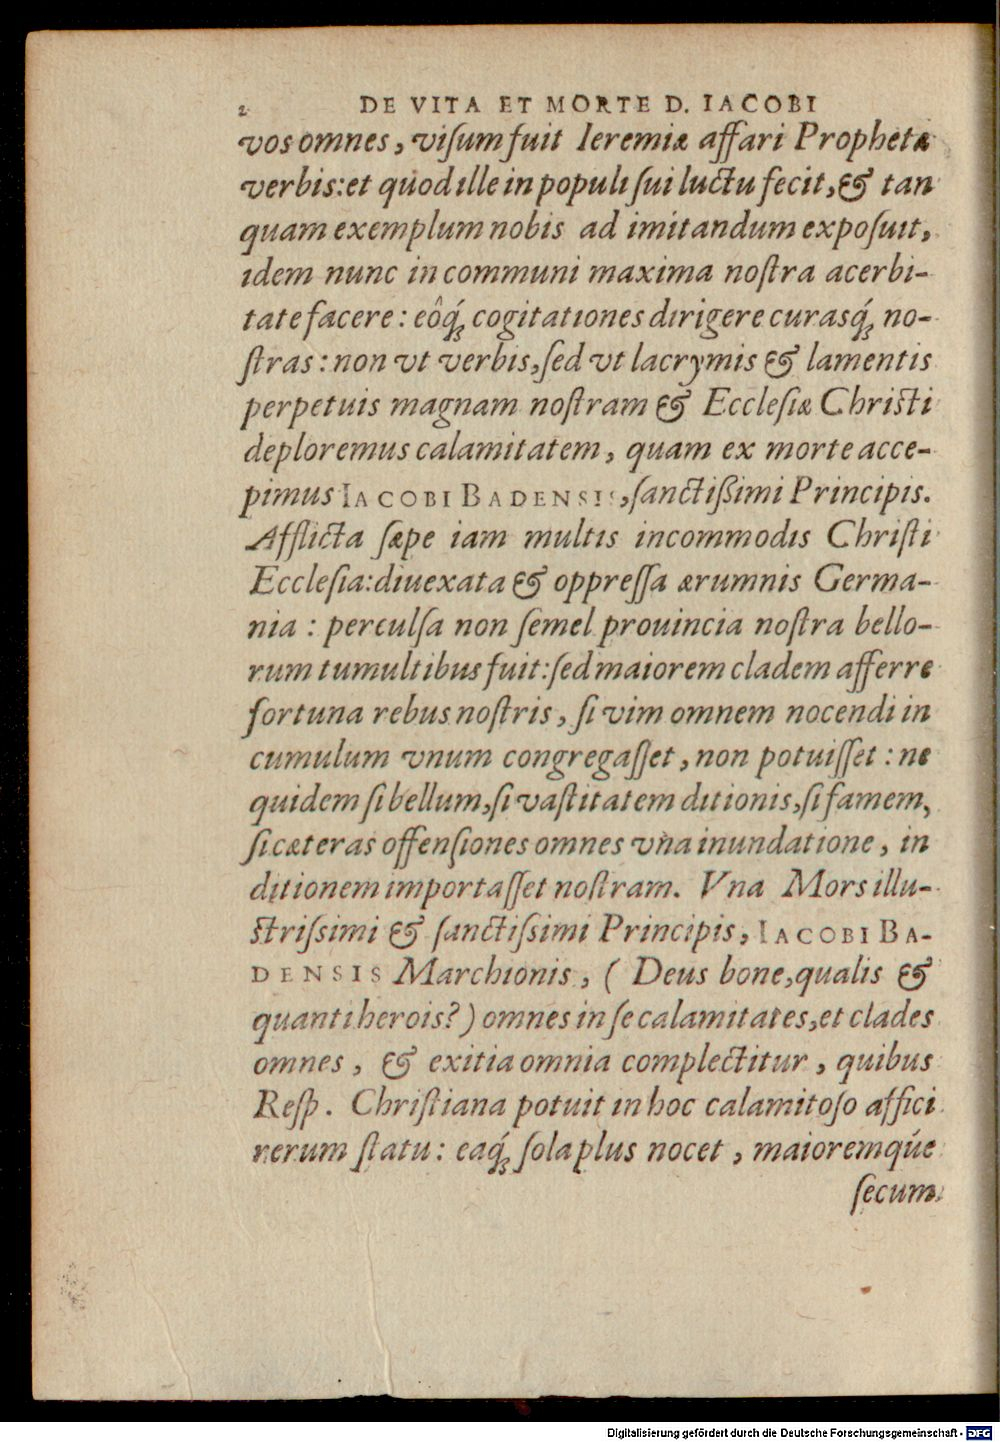 2 DE VITA ET MORTE D. IACOBI
vos omnes, viſum fuit Ieremiæ affari Prophetæ
verbis: et quod ille in populi ſui luctu fecit, & tan
quam exemplum nobis ad imitandum expoſuit,
idem nunc in communi maxima noſtra acerbi-
tate facere: eôq́ꝫ cogitationes dirigere curasq́ꝫ no-
ſtras: non vt verbis, ſed vt lacrymis & lamentis
perpetuis magnam noſtram & Eccleſiæ Chriſti
deploremus calamitatem, quam ex morte acce-
pimus IACOBI BADENSIS, ſanctißimi Principis.
Afflicta ſæpe iam multis incommodis Chriſti
Eccleſia: diuexata & oppreſſa ærumnis Germa-
nia: perculſa non ſemel prouincia noſtra bello-
rum tumultibus fuit: ſed maiorem cladem afferre
fortuna rebus noſtris, ſi vim omnem nocendi in
cumulum vnum congregaſſet, non potuiſſet: ne
quidem ſi bellum, ſi vaſtitatem ditionis, ſi famem,
ſi cæteras offenſiones omnes vna inundatione, in
ditionem importaſſet noſtram. Vna Mors illu-
ſtriſsimi & ſanctiſsimi Principis, IACOBI BA-
DENSIS Marchionis, (Deus bone, qualis &
quanti herois?) omnes in ſe calamitates, et clades
omnes, & exitia omnia complectitur, quibus
Reſp. Chriſtiana potuit in hoc calamitoſo affici
rerum ſtatu: eaq́ꝫ ſola plus nocet, maioremq́ue
ſecum
Digitalisierung gefördert durch die Deutsche Forschungsgemeinschaft - DFG